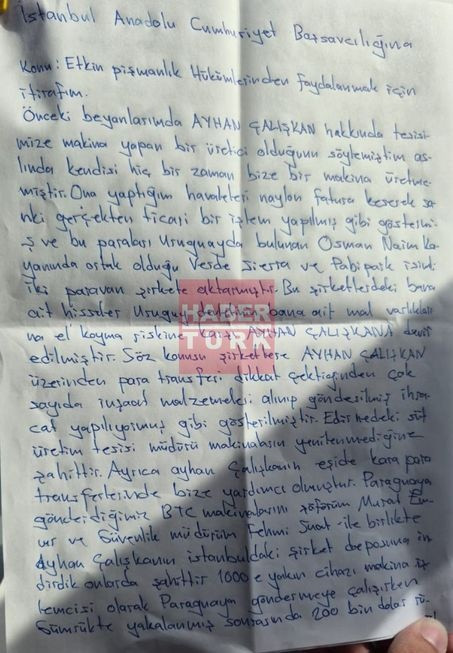 İstanbul Anadolu Cumhuriyet Başsavcılığına
Konu: Etkin pişmanlık Hükümlerinden faydalanmak için
itirafım.
Önceki beyanlarımda AYHAN ÇALIŞKAN hakkında tesisi-
mize makina yapan bir üretici olduğunu söylemiştim as-
lında kendisi hiç bir zaman bize bir makina üretme-
miştir. Ona yaptığım havaleleri naylon fatura keserek sa-
nki gerçekten ticari bir işlem yapılmış gibi göstermi-
ş ve bu paraları Uruguayda bulunan Osman Naim Ka-
yanında ortak olduğu Verde Sierra ve isimli
iki paravan şirkete aktarmıştır. Bu şirketlerdeki bana
ait hisseler Uruguay bana ait mal varlıkları
na el koyma riskine karşı AYHAN ÇALIŞKANA devir
edilmiştir. Söz konusu şirketlere AYHAN ÇALIŞKAN
üzerinden para transferi dikkat çektiğinden çok
sayıda inşaat malzemeleri alınıp gönderilmiş ihra-
cat yapılıyormuş gibi gösterilmiştir. Edirnedeki süt
üretim tesisi müdürü makinaların yenilenmediğine
şahittir. Ayrıca ayhan Çalışkanın eşide kara para
transferlerinde bize yardımcı olmuştur. Paraguaya
gönderdiğimiz BTC makinalarını şoförüm Murat
ve Güvenlik müdürüm Fehmi Suat ile birlikte
Ayhan Çalışkanın istanbuldaki şirket deposuna in
dirdik onlarda şahittir 1000 e yakın cihazı makina
temcisi olarak Paraguaya göndermeye çalışırken
Gümrükte yakalanmış sonrasında 200 bin dolar
HABER
TÜRK